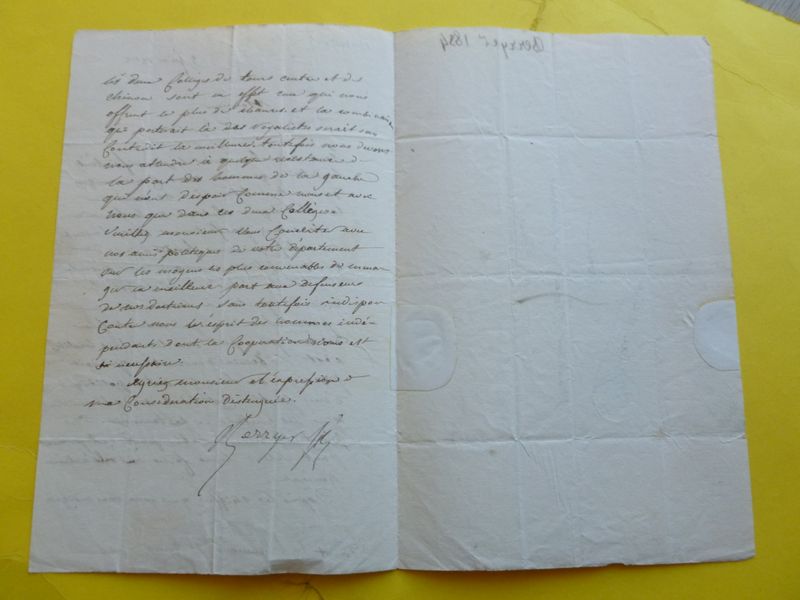 les deux Colleges de tours centre et de
chinon sont en effet ceux qui nous
offrent le plus de chances et la combinaison
que porterait la des Royalistes serait sans
Contredit la meilleure. toutefois nous devons
nous attendre à quelque resistance de
la part des hommes de la gauche
qui n'ont d'espoir Comme nous et avec
nous que dans ces deux Collèges.
Veuillez monsieur vous Consulter avec
nos amis politiques de votre département
sur les moyens les plus convenables de
la meilleure part aux défenseurs
de nos doctrines sans toutefois
Contre nous les esprit des hommes indé-
pendants dont la Cooperation nous est
si nécessaire.
agréez monsieur et l'expression de
ma Considération Distinguée.
Berryer fils
Berryer 1834